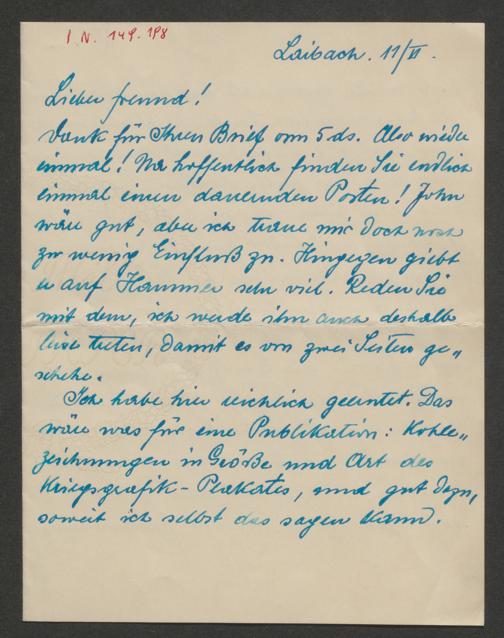 I. N. 149.198
Laibach. 11/VI.
Lieber Freund!
Dank für Ihren Brief vom 5 ds. Also wieder
einmal! Na hoffentlich finden Sie endlich
einmal einen dauernden Posten! John
wäre gut, aber ich traue mir doch noch
zu wenig Einfluß zu. Hingegen giebt
er auf Hammer sehr viel. Reden Sie
mit dem, ich werde ihm auch deshalb
treten, damit es von zwei Seiten ge„
schehe.
Ich habe hier reichlich geerntet. Das
wäre was für eine Publikation: Kohle„
zeichnungen in Größe und Art des
Kriegsgrafik-Plakates, und gut dazu,
soweit ich selbst das sagen kann.